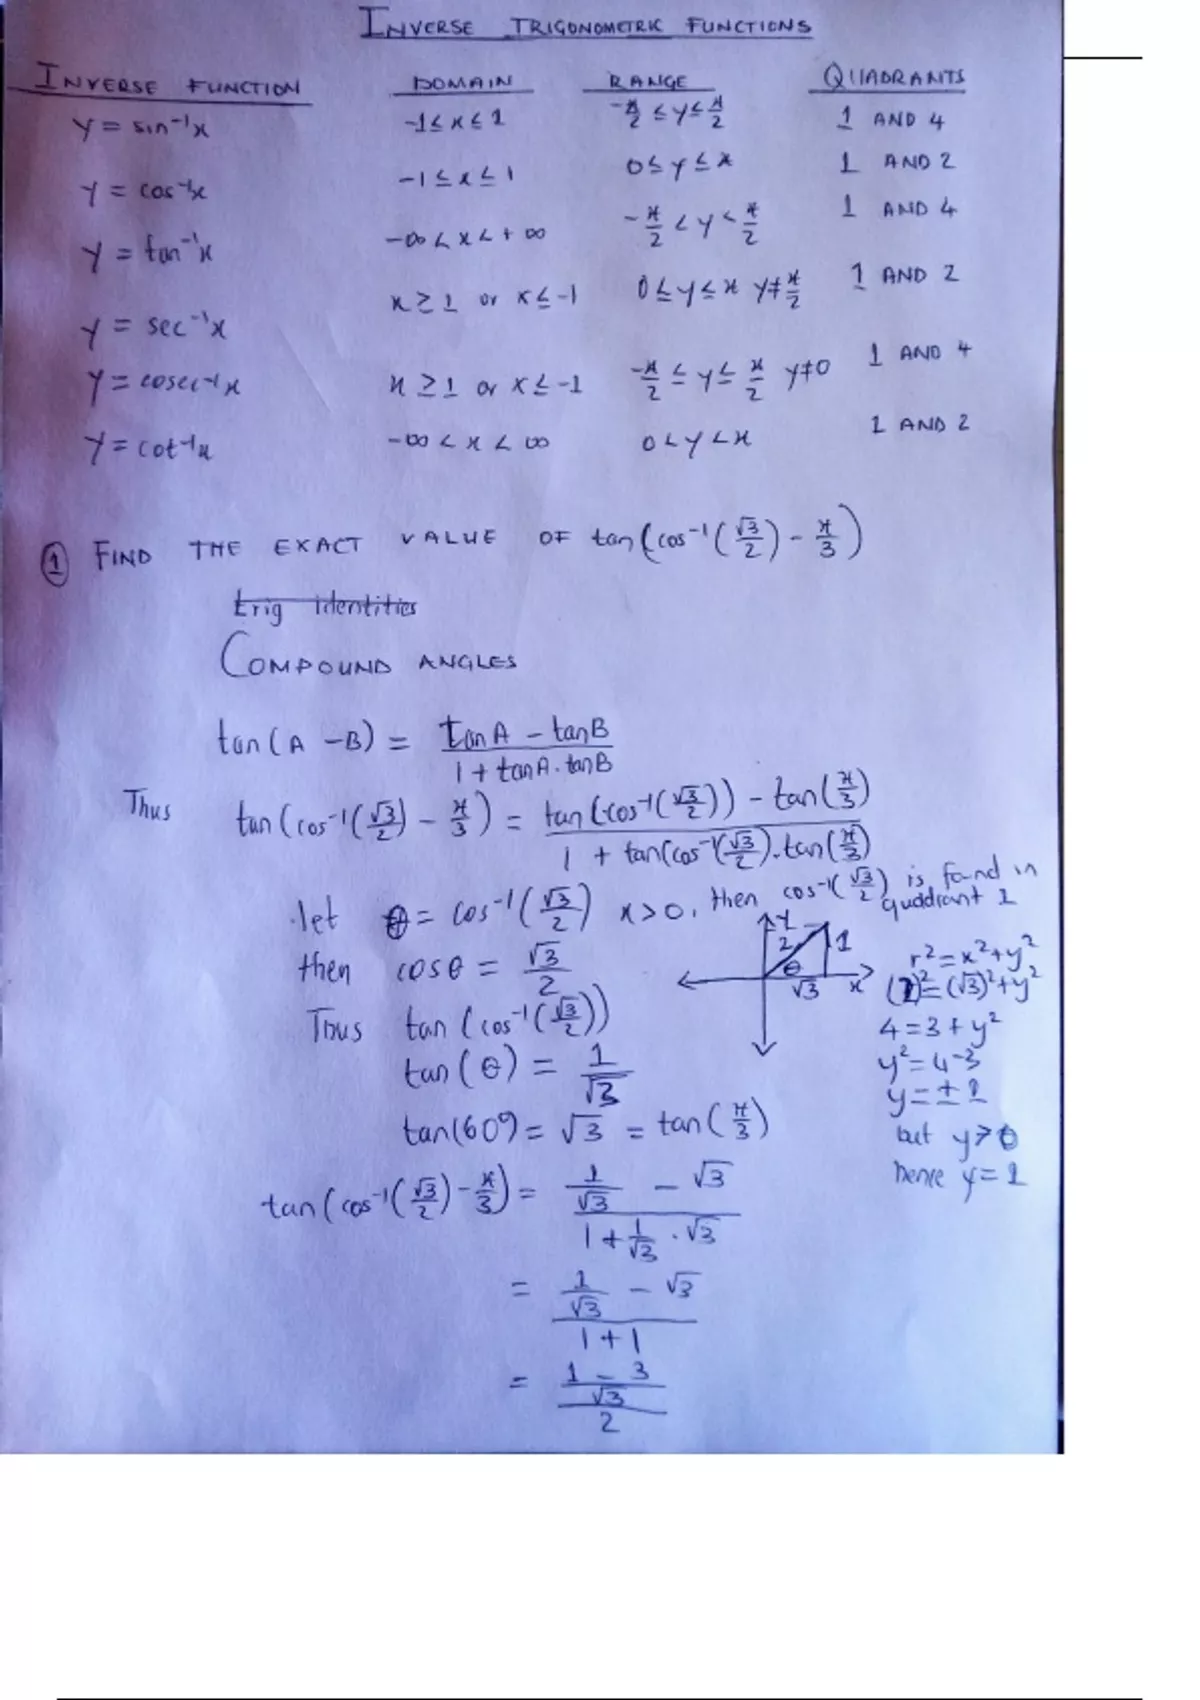 INVERSE TRIGONOMETRIC FUNCTIONS
INVERSE FUNCTION DOMAIN RANGE QUADRANTS
y = sin⁻¹x -1≤x≤1 -π/2 ≤y≤ π/2 1 AND 4
y = cos⁻¹x -1≤x≤1 0≤y≤π 1 AND 2
y = tan⁻¹x -∞<x<+∞ -π/2 <y< π/2 1 AND 4
y = sec⁻¹x x≥1 or x≤-1 0≤y≤π y≠π/2 1 AND 2
y = cosec⁻¹x x≥1 or x≤-1 -π/2 ≤y≤ π/2 y≠0 1 AND 4
y = cot⁻¹x -∞<x<∞ 0<y<π 1 AND 2
① FIND THE EXACT VALUE OF tan(cos⁻¹(√3/2) - π/3)
trig identities
COMPOUND ANGLES
tan(A -B) = (tanA - tanB)/(1 + tanA.tanB)
Thus tan(cos⁻¹(√3/2) - π/3) = (tan(cos⁻¹(√3/2)) - tan(π/3))/(1 + tan(cos⁻¹(√3/2).tan(π/3))
let θ = cos⁻¹(√3/2) x>0, then cos⁻¹(√3/2) is found in
quddrant 1
then cosθ = √3/2
y
2 1
θ
√3 x
r²=x²+y²
(2)²=(√3)²+y²
4=3+y²
y²=4-3
y=±1
but y>0
hence y=1
Thus tan(cos⁻¹(√3/2))
tan(θ) = 1/√3
tan(60°) = √3 = tan(π/3)
tan(cos⁻¹(√3/2) - π/3) = (1/√3 - √3)/(1 + 1/√3 . √3)
= (1/√3 - √3)/(1+1)
= ((1-3)/√3)/2